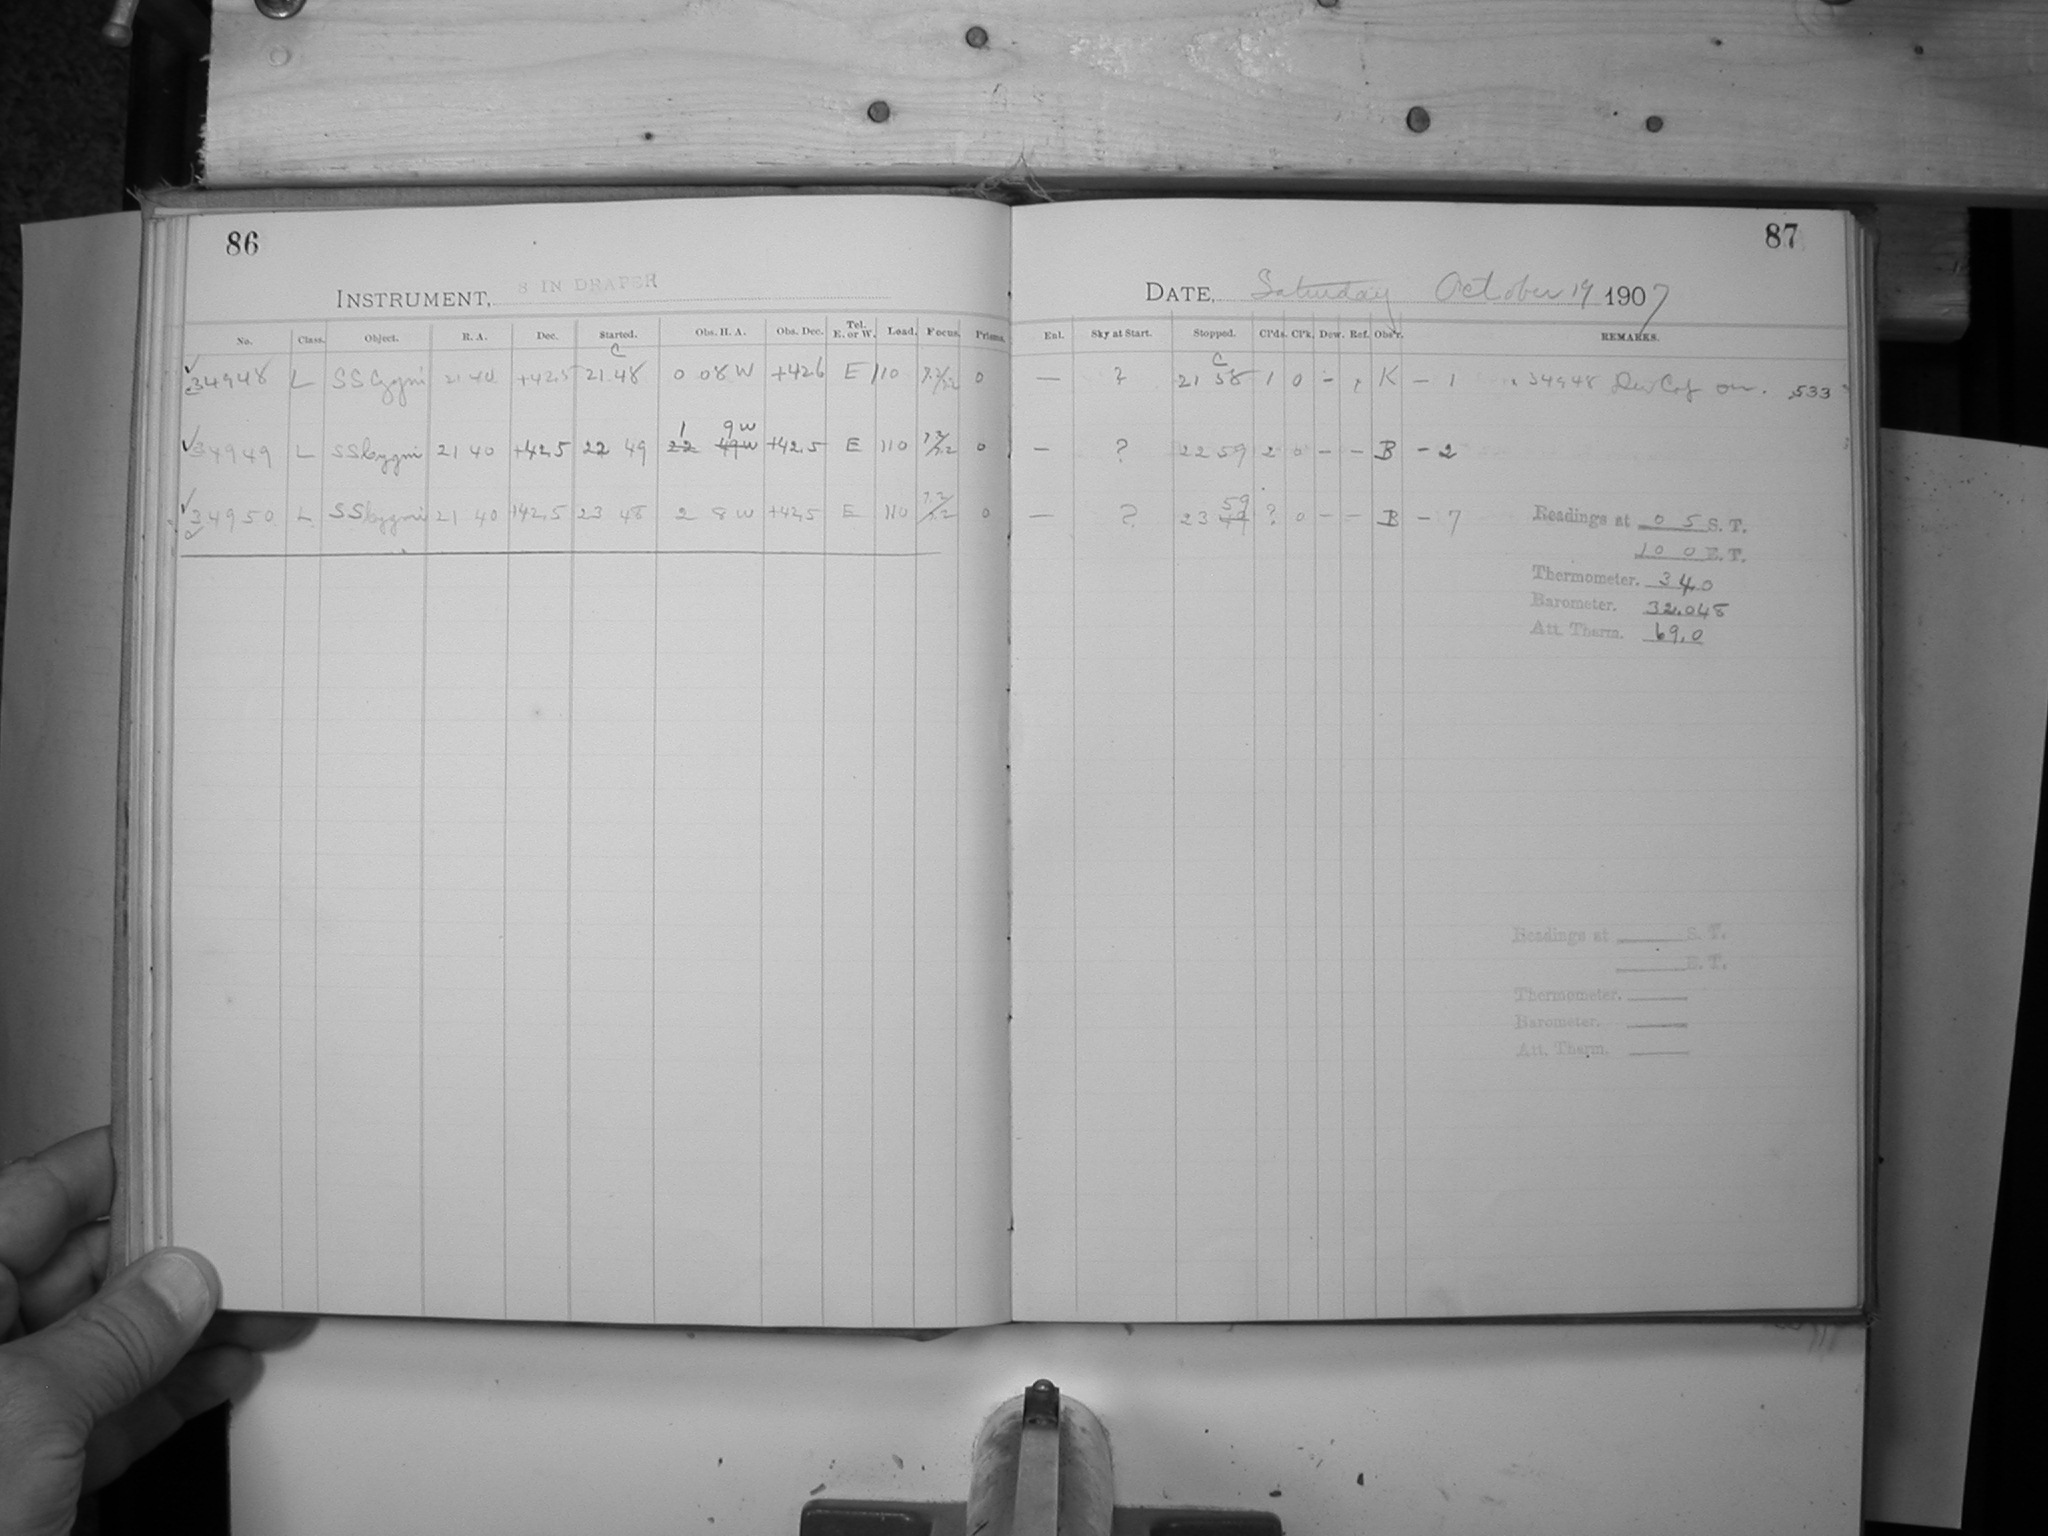 86
INSTRUMENT, 8 IN DRAPER
No. Class. Object. R. A. Dec. Started. Obs. H. A. Obs. Dec. Tel. E. or W. Load. Focus. Prisms.
C
34948 L SS Cygni 21 40 +42.5 21 48 0 08 W +42.6 E 110 7.2/7.2 0
1 9 W
34949 L SS Cygni 21 40 +42.5 22 49 22 49 W +42.5 E 110 7.2/7.2 0
34950 L SS Cygni 21 40 +42.5 23 48 2 8 W +42.5 E 110 7.2/7.2 0
87
DATE, Saturday October 19 1907
Enl. Sky at Start. Stopped. Cl'ds. Cl'k. Dew. Ref. Obs'r. REMARKS.
C
— ? 21 58 1 0 - K - 1 34948 Dew Cap on. .533
— ? 22 59 2 0 - - B - 2
59
— ? 23 49 ? 0 - - B - 7
Readings at 0 5 S. T.
10 0 E. T.
Thermometer. 34.0
Barometer. 32.048
Att. Therm. 69.0
Readings at S. T.
E. T.
Thermometer.
Barometer.
Att. Therm.